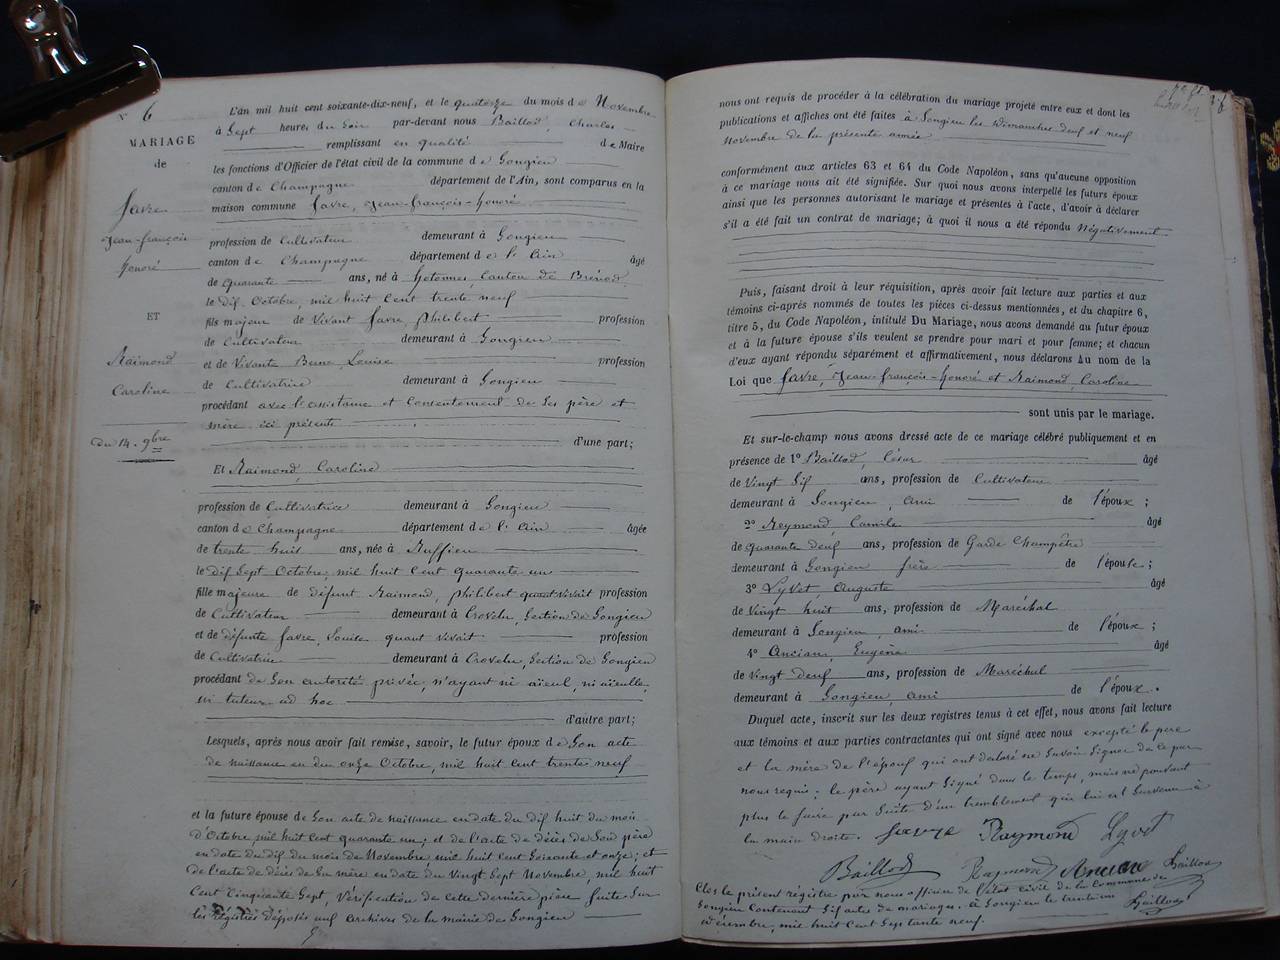 N° 6
MARIAGE
de
Favre
Jean-françois
honoré
ET
Raimond
Caroline
Du 14. 9bre
L'an mil huit cent soixante-dix-neuf, et le quatorze du mois de Novembre
à Sept heures du Soir par-devant nous Baillod, Charles
remplissant en qualité de Maire
les fonctions d'Officier de l'état civil de la commune de Songieu
canton de Champagne département de l'Ain, sont comparus en la
maison commune favre, Jean-françois-honoré
profession de Cultivateur demeurant à Songieu
canton de Champagne département de l'Ain âgé
de quarante ans, né à hotonnes, Canton de Brénod
le dix Octobre, mil huit Cent trente neuf
fils majeur de Vivant favre, philibert profession
de Cultivateur demeurant à Songieu
et de Vivante Louise profession
de Cultivatrice demeurant à Songieu
procédant avec l'assistance et Consentement de Ses père et
mère ici présents
d'une part;
Et Raimond, Caroline
profession de Cultivatrice demeurant à Songieu
canton de Champagne département de l'Ain âgée
de trente huit ans, née à Ruffieu
le dix Sept Octobre, mil huit Cent quarante un
fille majeure de défunt Raimond, philibert quand vivait profession
de Cultivateur demeurant à Crovelu, Section de Songieu
et de défunte favre, Louise quant vivait profession
de Cultivatrice demeurant à Crovelu, Section de Songieu
procédant de Son autorité privée, n'ayant ni aïeul, ni aïeulle,
ni tuteur ad hoc
d'autre part;
Lesquels, après nous avoir fait remise, savoir, le futur époux de Son acte
de naissance en du onze Octobre, mil huit Cent trente neuf
et la future épouse de Son acte de naissance en date du dix huit du mois
d'Octobre, mil huit Cent quarante un; et de l'acte de décès de Son père
en date du dix du mois de Novembre mil huit Cent Soixante et onze; et
de l'acte de décès de Sa mère en date du Vingt Sept Novembre, mil huit
Cent Cinquante Sept, Vérification de Cette dernière pièce faite Sur
les Régistres déposés aux archives de la mairie de Songieu
nous ont requis de procéder à la célébration du mariage projeté entre eux et dont les
publications et affiches ont été faites à Songieu les Dimanches deux et neuf
Novembre de la présente année
conformément aux articles 63 et 64 du Code Napoléon, sans qu'aucune opposition
à ce mariage nous ait été signifiée. Sur quoi nous avons interpellé les futurs époux
ainsi que les personnes autorisant le mariage et présentes à l'acte, d'avoir à déclarer
s'il a été fait un contrat de mariage; à quoi il nous a été répondu Négativement
Puis, faisant droit à leur réquisition, après avoir fait lecture aux parties et aux
témoins ci-après nommés de toutes les pièces ci-dessus mentionnées, et du chapitre 6,
titre 5, du Code Napoléon, intitulé Du Mariage, nous avons demandé au futur époux
et à la future épouse s'ils veulent se prendre pour mari et pour femme; et chacun
d'eux ayant répondu séparément et affirmativement, nous déclarons Au nom de la
Loi que favre, Jean-françois-honoré et Raimond, Caroline
sont unis par le mariage.
Et sur-le-champ nous avons dressé acte de ce mariage célébré publiquement et en
présence de 1° Baillod, César âgé
de Vingt Six ans, profession de Cultivateur
demeurant à Songieu, ami de l'époux;
2° Reymond, Camile âgé
de quarante deux ans, profession de Garde Champêtre
demeurant à Songieu frère de l'épouse;
3° Lyvet, Auguste âgé
de Vingt huit ans, profession de Maréchal
demeurant à Songieu, ami de l'époux;
4° Anciau, Eugène âgé
de Vingt deux ans, profession de Maréchal
demeurant à Songieu, ami de l'époux.
Duquel acte, inscrit sur les deux registres tenus à cet effet, nous avons fait lecture
aux témoins et aux parties contractantes qui ont signé avec nous excepté le père
et la mère de l'époux qui ont déclaré ne Savoir Signer de ce par
nous requis; le père ayant Signé dans le temps, mais ne pouvant
plus le faire par Suite d'un tremblement qui lui est Survenu à
la main droite. favre Raymond Lyvet
Baillod Raymond Anciau Baillod
Clos le présent régistre par nous officier de l'état civil de la Commune de
Songieu Contenant Six actes de mariages. à Songieu le trente un Baillod
décembre, mil huit Cent Septante neuf.